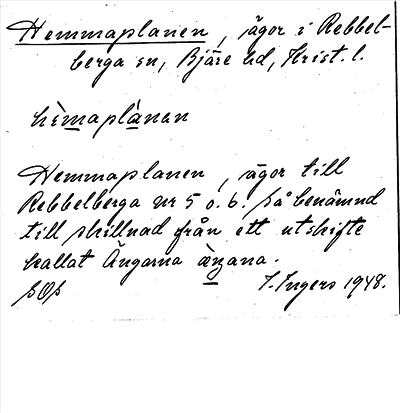 Hemmaplanen, ägor i Rebbel-
berga sn, Bjäre hd, Krist. l.
hèmaplànen
Hemmaplanen, ägor till
Rebbelberga nr 5 o. 6. Så benämnd
till skillnad från ett utskifte
kallat Ängarna
I. Ingers 1948.